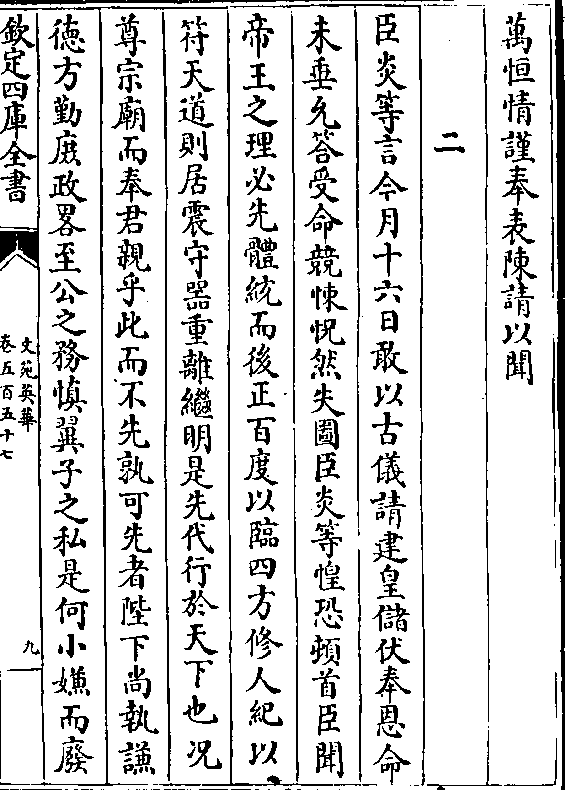 萬恒情謹奉表陳請以聞
二
臣炎等言今月十六日敢以古儀請建皇儲伏奉恩命
未垂允答受命競悚怳然失圖臣炎等惶恐頓首臣聞
帝王之理必先體統而後正百度以臨四方修人紀以
符天道則居震守器重離繼明是先代行於天下也况
尊宗廟而奉君親乎此而不先孰可先者陛下尚執謙
徳方勤庶政畧至公之務慎翼子之私是何小嫌而廢
欽定四庫全書
文苑英華
卷五百五十七
九